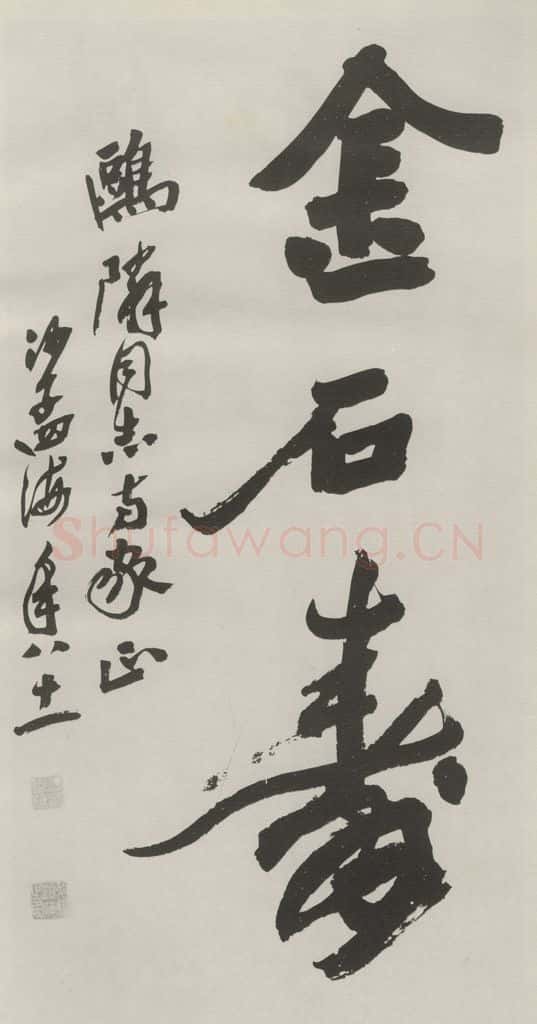 金石壽
鷗隣同志方家正
沙孟海年八十一
Shufawang.CN